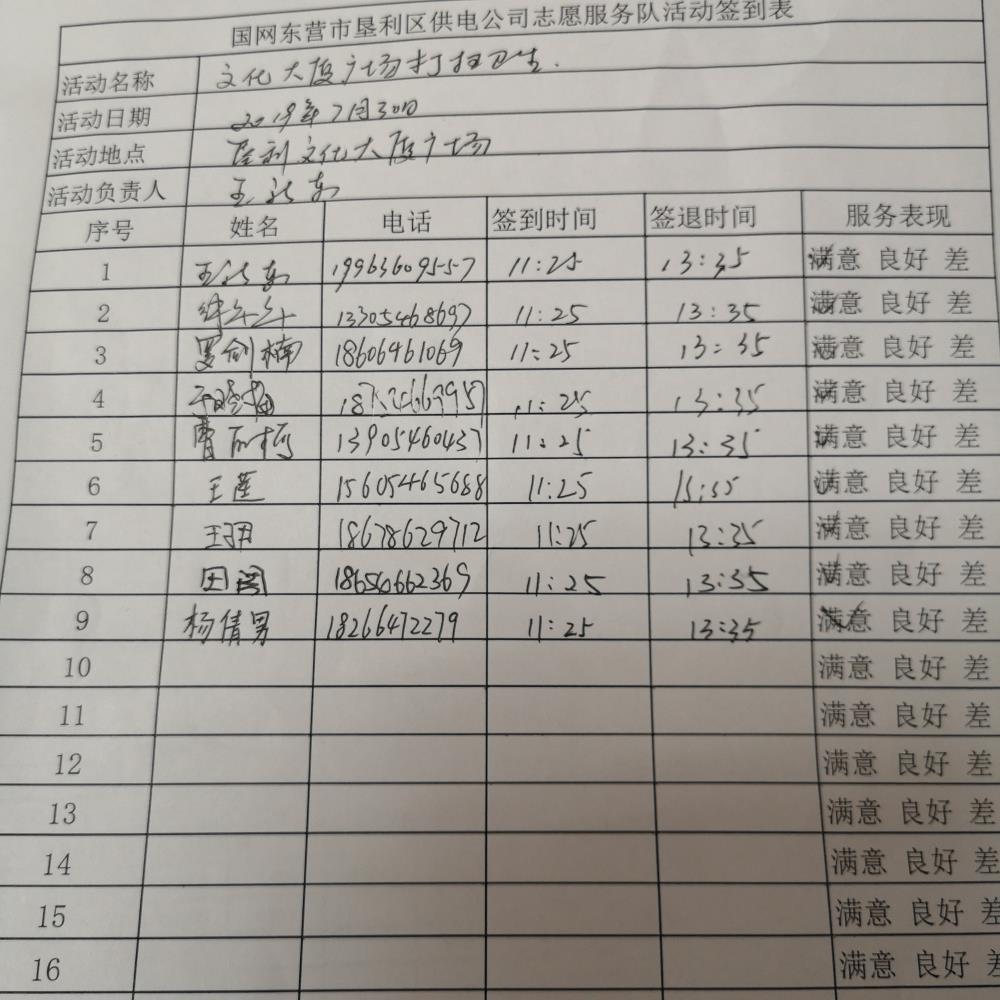 国网东营市垦利区供电公司志愿服务队活动签到表
活动名称 文化大厦广场打扫卫生.
活动日期 2019年7月30日
活动地点 垦利文化大厦广场
活动负责人 王
序号 姓名 电话 签到时间 签退时间 服务表现
1 王 19963609557 11:25 13:35 满意 良好 差
2 13305468697 11:25 13:35 满意 良好 差
3 罗剑楠 18606461069 11:25 13:35 满意 良好 差
4 11:25 13:35 满意 良好 差
5 曹 13905460437 11:25 13:35 满意 良好 差
6 王莲 15605465688 11:25 满意 良好 差
7 王 18678629712 11:25 13:35 满意 良好 差
8 田阔 18650662369 11:25 13:35 满意 良好 差
9 杨倩男 18266472279 11:25 13:35 满意 良好 差
10 满意 良好 差
11 满意 良好 差
12 满意 良好 差
13 满意 良好 差
14 满意 良好 差
15 满意 良好 差
16 满意 良好 差